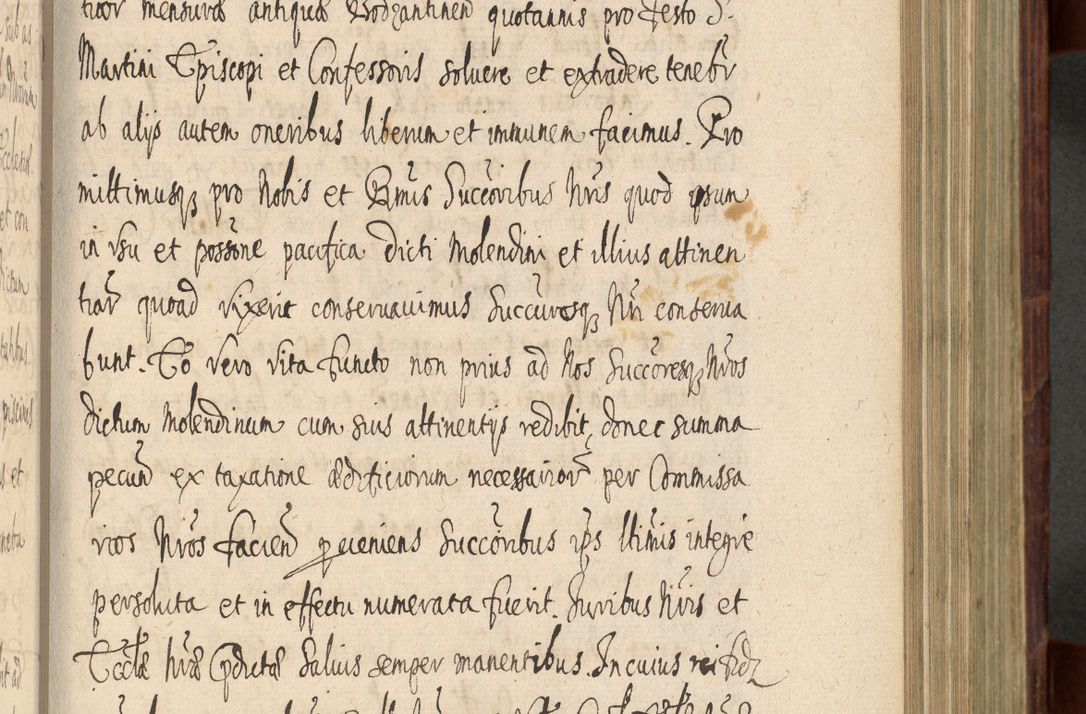 tuor mensuras antiquas Bodzantinen quotannis pro Festo S.
Martini Episcopi et Confessoris soluere et extradere tenebr
ab alijs autem oneribus liberum et immunem facimus. Pro
mittimusq3 pro Nobis et Rmis Succoribus Nris quod ipsum
in vsu et possone pacifica dicti Molendini et illius attinen
tiar quoad vixerit conseruauimus Succuresq3 Nri conserua
bunt. Eo vero vita functo non prius ad Nos Succoresq3 Nros
dictum Molendinum cum suis attinentijs redibit, donec summa
pecun ex taxatione ædificiorum necessarior per Commissa
rios Nros facien pueniens Succoribus ips lltimis integre
persoluta et in effectu numerata fuerit. Juribus Nris et
Eccle Nræ Pdictæ Saluis semper manentibus. In cuius rei fidz